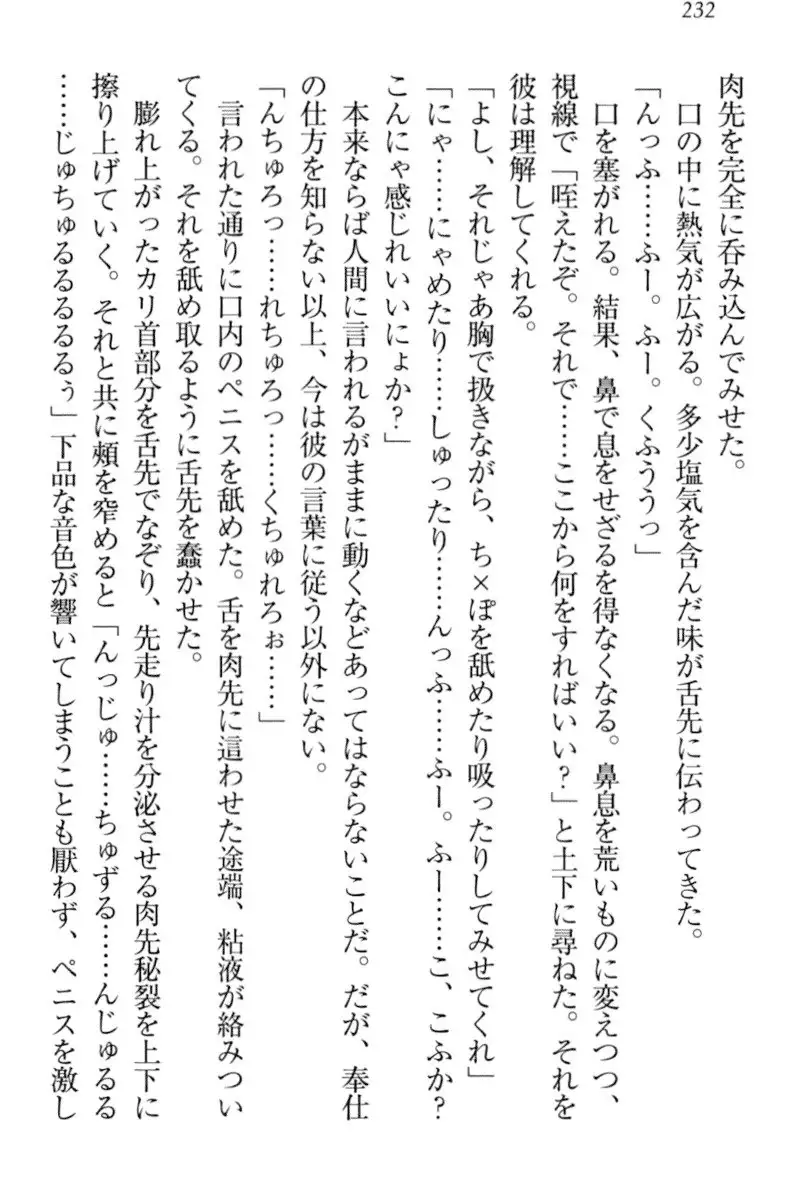 232
肉先を完全に呑み込んでみせた。
　口の中に熱気が広がる。多少塩気を含んだ味が舌先に伝わってきた。
「んっふ……ふー。ふー。くふううっ」
　口を塞がれる。結果、鼻で息をせざるを得なくなる。鼻息を荒いものに変えつつ、
視線で「咥えたぞ。それで……ここから何をすればいい？」と土下に尋ねた。それを
彼は理解してくれる。
「よし、それじゃあ胸で扱きながら、ち×ぽを舐めたり吸ったりしてみせてくれ」
「にゃ……にゃめたり……しゅったり……んっふ……ふー。ふー……こ、こふか？
こんにゃ感じれいいにょか？」
　本来ならば人間に言われるがままに動くなどあってはならないことだ。だが、奉仕
の仕方を知らない以上、今は彼の言葉に従う以外にない。
「んちゅろっ……れちゅろっ……くちゅれろぉ……」
　言われた通りに口内のペニスを舐めた。舌を肉先に這わせた途端、粘液が絡みつい
てくる。それを舐め取るように舌先を蠢かせた。
　膨れ上がったカリ首部分を舌先でなぞり、先走り汁を分泌させる肉先秘裂を上下に
擦り上げていく。それと共に頬を窄めると「んっじゅ……ちゅずる……んじゅるる
……じゅちゅるるるるるぅ」下品な音色が響いてしまうことも厭わず、ペニスを激し